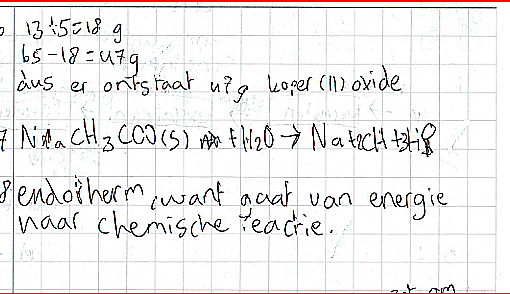 13+5=18 g
65-18=47g
dus er ontstaat 47g koper (II) oxide
7 NaCH3COO(s) + H2O → Na+2CH+3H
8 endotherm, want gaat van energie
naar chemische reactie.